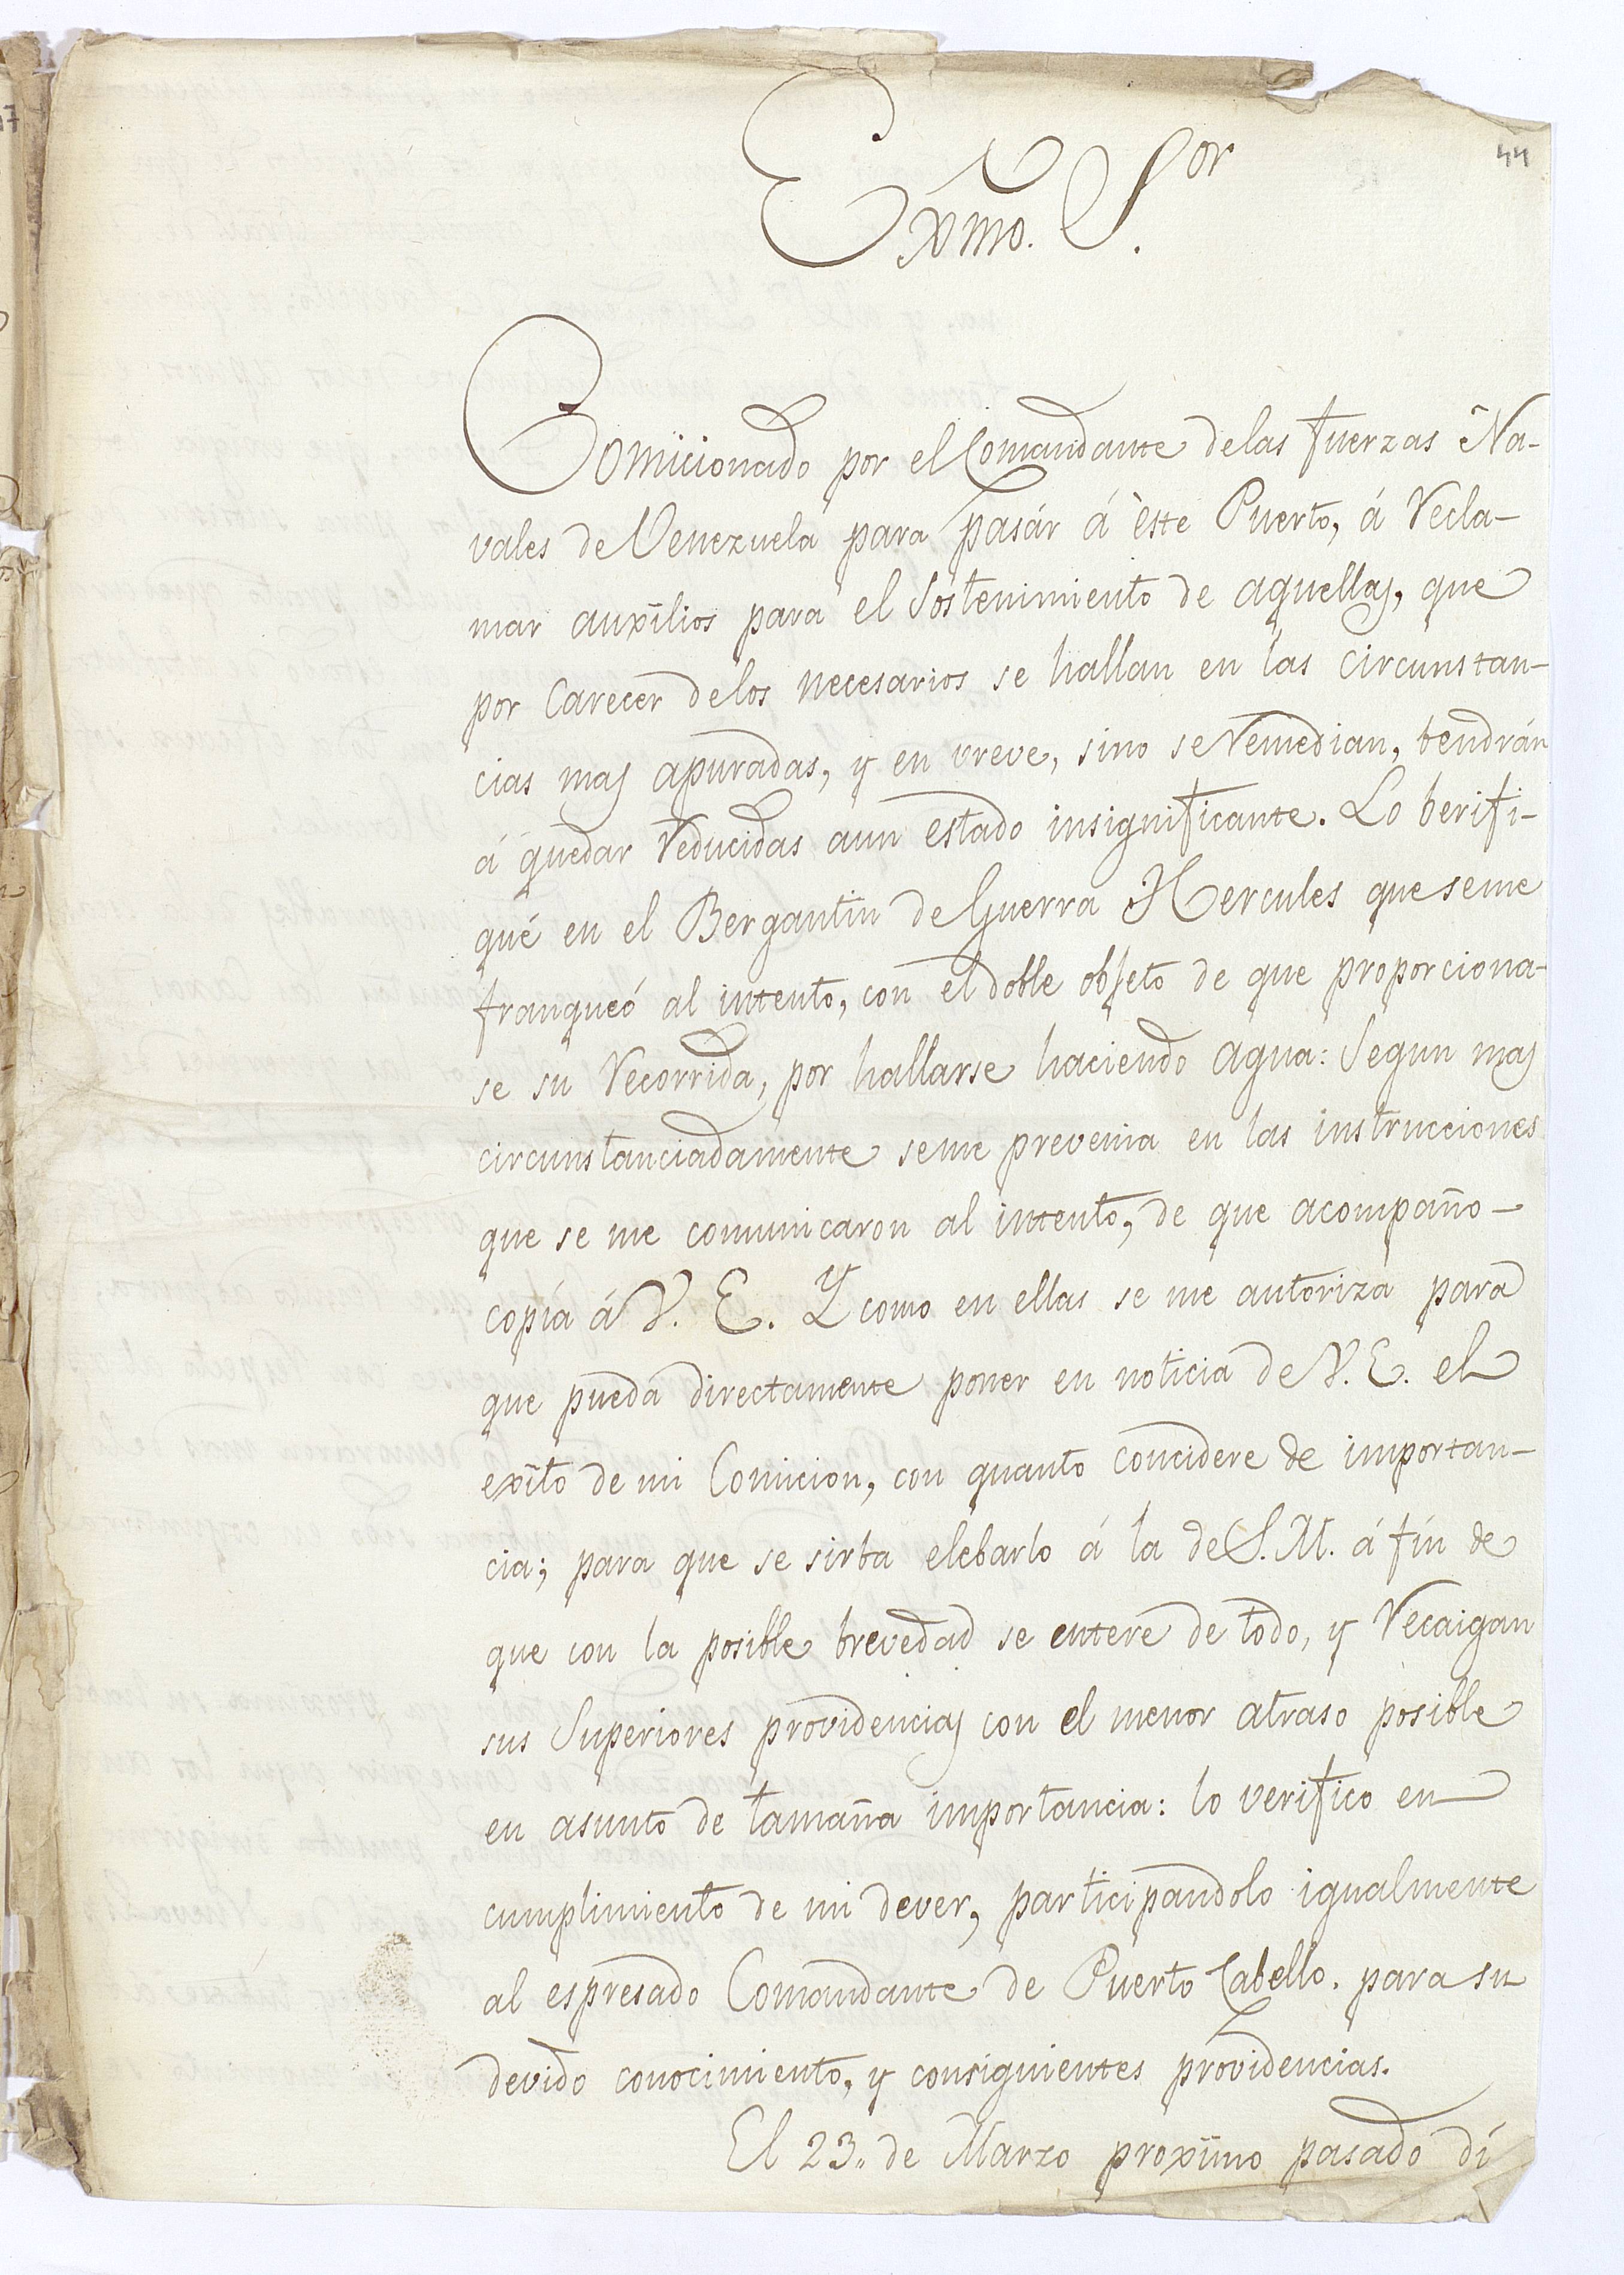 44
Exmo. S.or
Comicionado por el Comandante delas fuerzas Na-
vales de Venezuela para pasár á èste Puerto, á recla-
mar auxîlios para el Sostenimiento de aquellas, que
por Carecer delos necesarios se hallan en las circunstan-
cias mas apuradas, y en vreve, sino se remedian, bendrán
á quedar reducidas aun estado insignificante. Lo berifi-
qué en el Bergantin de Guerra Hercules que seme
franqueó al intento, con el doble objeto de que proporciona-
se su recorrida, por hallarse haciendo agua: Segun mas
circunstanciadamente seme prevenia en las instrucciones
que se me comunicaron al intento, de que acompaño-
copía á V. E. Y como en ellas se me autoriza para
que pueda directamente poner en noticia de V. E. el
exîto de mi Comicion, con quanto concidere de importan-
cia; para que se sirba elebarlo á la de S. M. á fín de
que con la posible brevedad se entere de todo, y recaigan
sus Superiores providencias con el menor atraso posible
en asunto de tamaña importancia: lo verifico en
cumplimiento de mi dever, participandolo igualmente
al espresado Comandante de Puerto Cabello. para su
devido conocimiento, y consiguientes providencias.
El 23.. de Marzo proxîmo pasado dí